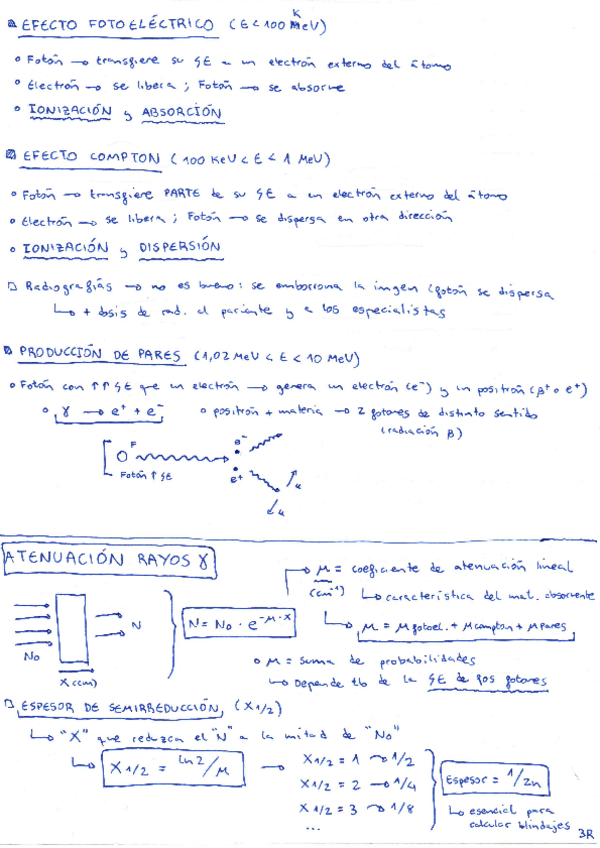 EFECTO FOTOELÉCTRICO (E < 100 KeV)
Fotón → transfiere su E a un electrón externo del átomo
Electrón → se libera ; Fotón → se absorve
IONIZACIÓN y ABSORCIÓN
EFECTO COMPTON (100 KeV < E < 1 MeV)
Fotón → transfiere PARTE de su E a un electrón externo del átomo
Electrón → se libera ; Fotón → se dispersa en otra dirección
IONIZACIÓN y DISPERSIÓN
Radiografías → no es bueno: se emborrona la imgen (fotón se dispersa
↳ + dosis de rad. al paciente y a los especialistas
PRODUCCIÓN DE PARES (1,02 MeV < E < 10 MeV)
Fotón con ↑↑ E que un electrón → genera un electrón (e⁻) y un positrón (β⁺ o e⁺)
γ → e⁺ + e⁻
positrón + materia → 2 fotones de distinto sentido
(radiación β)
F
Fotón ↑ E
e⁻
e⁺
ATENUACIÓN RAYOS γ
No
X (cm)
N
N = No · e^-μ·x
μ = coeficiente de atenuación lineal
(cm⁻¹)
↳ característica del mat. absorvente
↳ μ = μ fotoel. + μ compton + μ pares
μ = suma de probabilidades
↳ Depende tb de la E de los fotones
ESPESOR DE SEMIRREDUCCIÓN (X1/2)
↳ "X" que reduzca el "N" a la mitad de "No"
↳ X1/2 = ln2/μ
X1/2 = 1 → 1/2
X1/2 = 2 → 1/4
X1/2 = 3 → 1/8
...
Espesor = 1/2n
↳ esencial para
calcular blindajes
3R